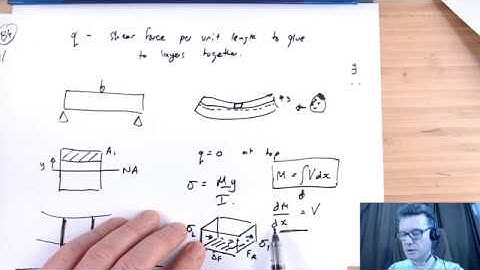 q - shear force per unit length to glue
to layers together.
b
y
A₁
y
NA
q = 0 at top
σ = My
I
M = ∫V dx
dM
dx
= V
σL
ΔF
FR